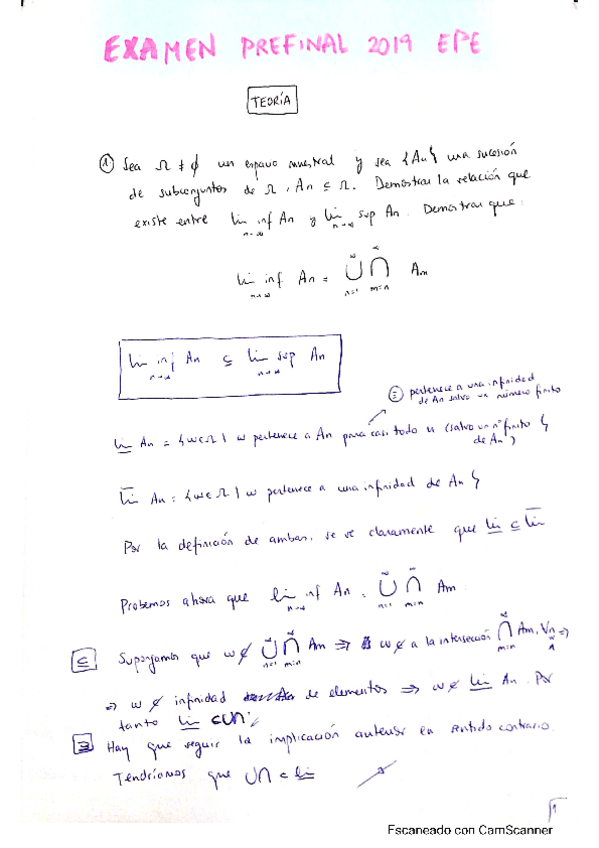 EXAMEN PREFINAL 2019 EPE
TEORÍA
① Sea Ω ≠ ∅ un espacio muestral y sea {An} una sucesión
de subconjuntos de Ω, An ⊆ Ω. Demostrar la relación que
existe entre lim inf An y lim sup An. Demostrar que:
n→∞ n→∞
lim inf An = ∪ ∩ Am
n→∞ n=1 m=n
lim inf An ⊆ lim sup An
n→∞ n→∞
pertenece a una infinidad
de An salvo un número finito
lim An = {w∈Ω | w pertenece a An para casi todo n (salvo un nº finito
de An)}
lim An = {w∈Ω | w pertenece a una infinidad de An}
Por la definición de ambas, se ve claramente que lim ⊆ lim
Probemos ahora que lim inf An = ∪ ∩ Am
n→∞ n=1 m=n
⊆ Supongamos que w ∉ ∪ ∩ Am ⇒ w ∉ a la intersección ∩ Am, ∀n ⇒
n=1 m=n m=n
⇒ w ∉ infinidad de elementos ⇒ w ∉ lim An. Por
tanto lim ⊂ ∪∩
⊇ Hay que seguir la implicación anterior en sentido contrario.
Tendríamos que ∪∩ ⊂ lim
1
Escaneado con CamScanner